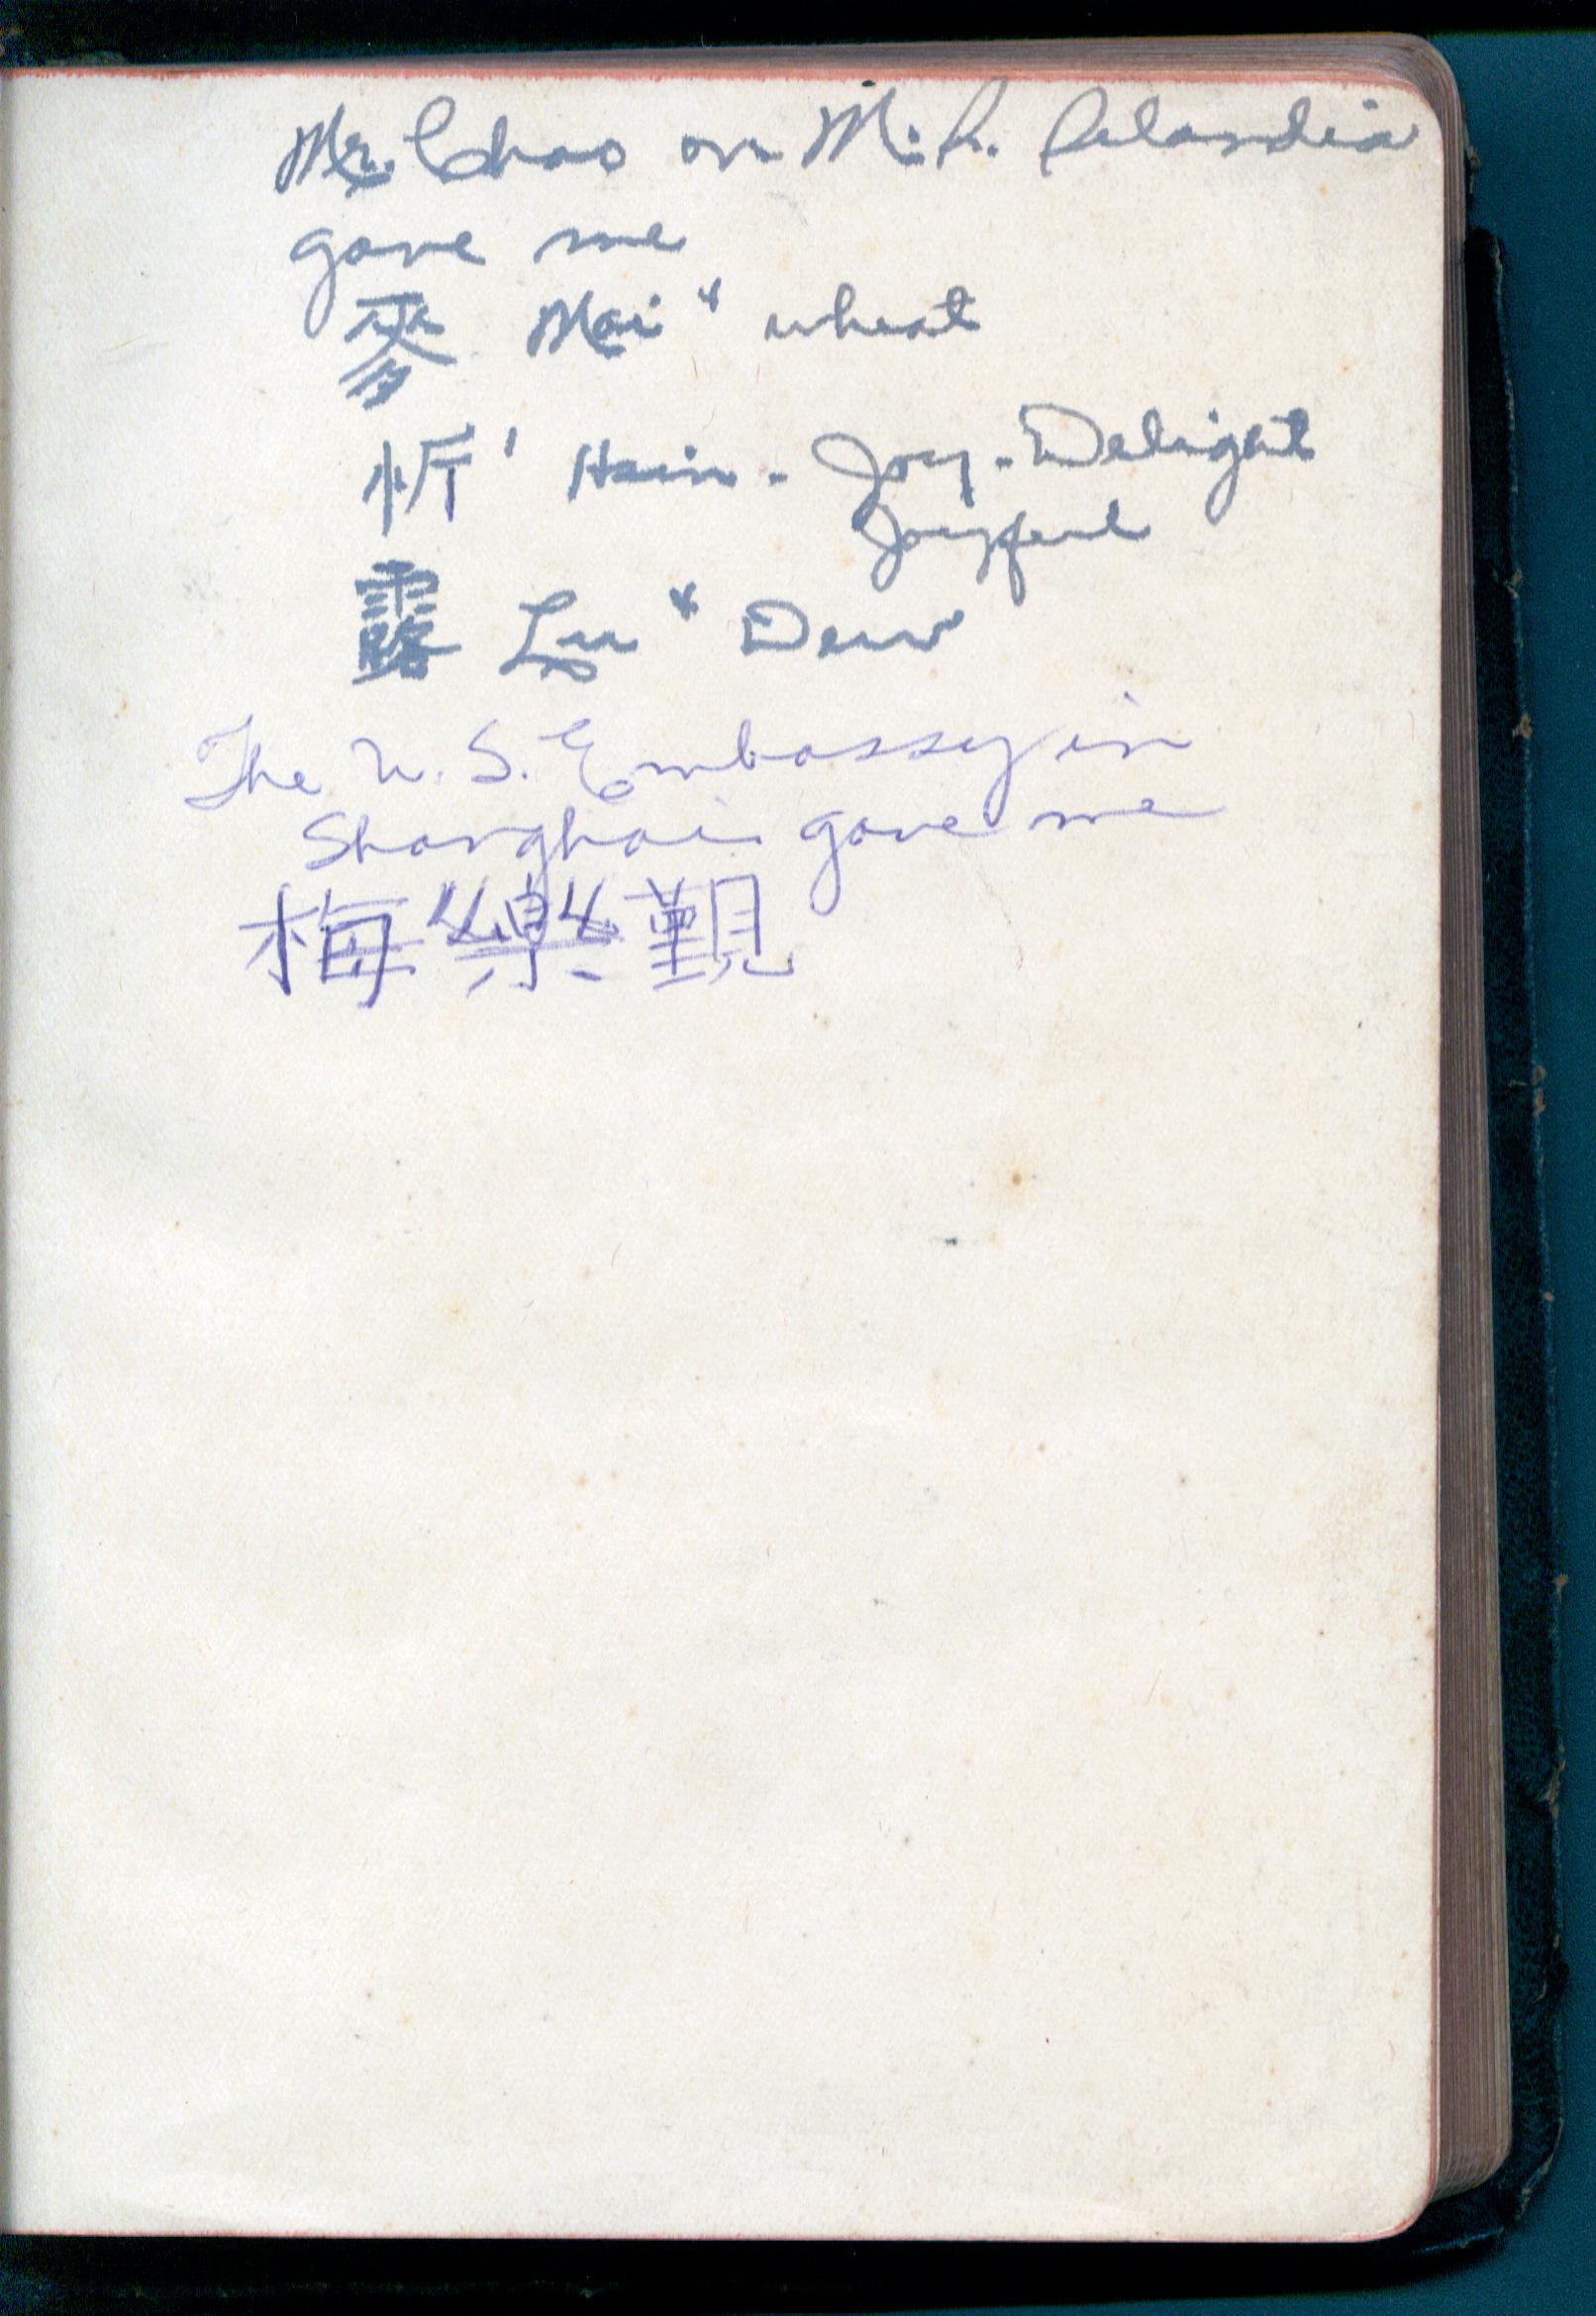 Mr. Chao on M.S. Selandia
gave me
麥 Mai⁴ wheat
忻¹ Hsin - Joy - Delight
Joyful
露 Lu⁴ Dew
The U.S. Embassy in
Shanghai gave me
梅樂覲